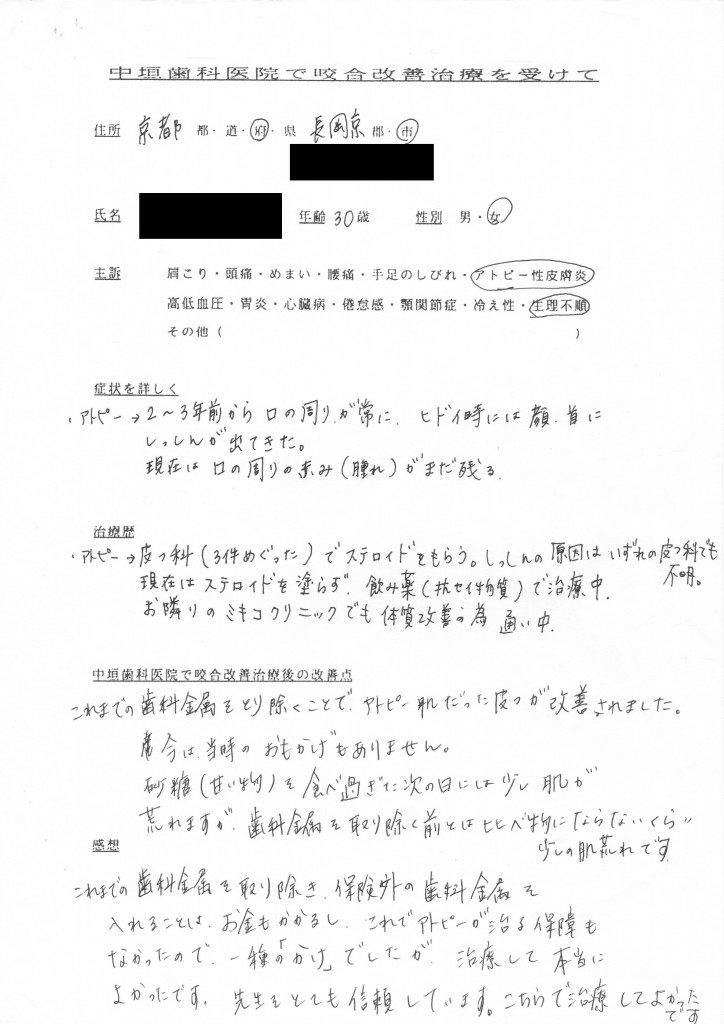 中垣歯科医院で咬合改善治療を受けて
住所 京都 都・道・府・県 長岡京 郡・市
氏名 年齢 30歳 性別 男・女
主訴 肩こり・頭痛・めまい・腰痛・手足のしびれ・アトピー性皮膚炎
高低血圧・胃炎・心臓病・倦怠感・顎関節症・冷え性・生理不順
その他( )
症状を詳しく
・アトピー→2〜3年前から口の周りが常に、ヒドイ時には顔、首に
しっしんが出てきた。
現在は口の周りの赤み(腫れ)がまだ残る。
治療歴
・アトピー→皮フ科(3件めぐった)でステロイドをもらう。しっしんの原因はいずれの皮フ科でも
不明。
現在はステロイドを塗らず、飲み薬(抗セイ物質)で治療中。
お隣りのミキコクリニックでも体質改善の為 通い中。
中垣歯科医院で咬合改善治療後の改善点
これまでの歯科金属をとり除くことで、アトピー肌だった皮フが改善されました。
今は、当時のおもかげもありません。
砂糖(甘い物)を食べ過ぎた次の日には少し肌が
荒れますが、歯科金属を取り除く前とは比べ物にならないくらい
少しの肌荒れです。
感想
これまでの歯科金属を取り除き、保険外の歯科金属を
入れることは、お金もかかるし、これでアトピーが治る保障も
なかったので、一種の「かけ」でしたが、治療して本当に
よかったです。先生をとても信頼しています。こちらで治療してよかった
です